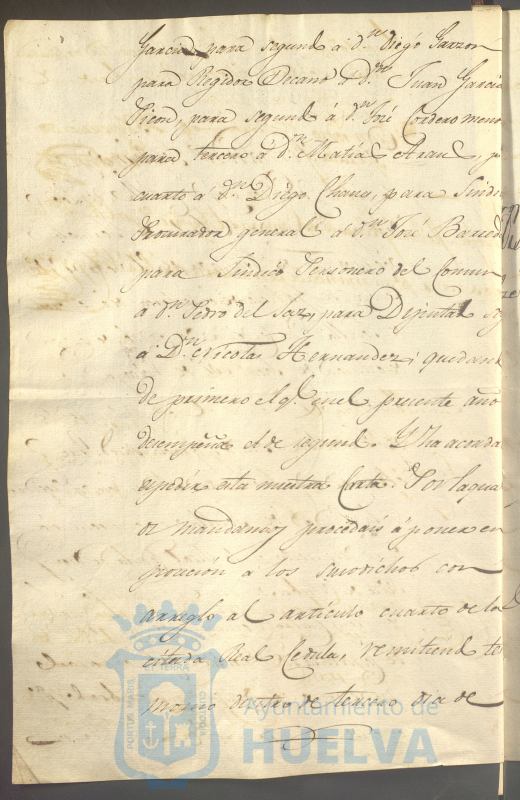 Garcia, para segund à d.n Diego Garzon
para Regidor Decano à D.n Juan Garcia
para segund à d.n José Cordero menor
para tercero à D.n Matias Arau, p
cuarto à D.n Diego Chaus, para Sindi
Procurador general à d.n José Barred
para Sindico Personero del Comun
à d.n Pedro del Saz, para Diputad
à D.n Nicolas Hernandez, quedand
de primero el q.e en el presente año
desempeña el de segund. Y ha acorda
espedir esta nuestra Carta. Por la qual
os mandamos procedais à poner en
posecion a los susodichos con
arreglo al articulo cuarto de la
citada Real Cedula, remitiend te
monio dentro de tercero dia de
PORTUS MARIS
ET TERRÆ
CUSTODIA
Ayuntamiento de
HUELVA